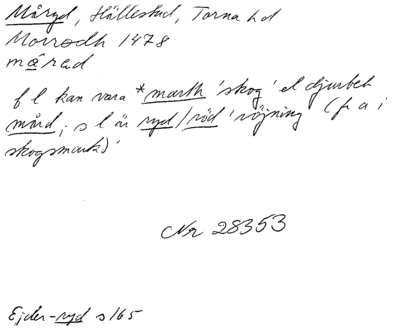 Måryd, Hällestad, Torna hd
Morrodh 1478
mårad
f l kan vara *marth 'skog' el djurbet
mård; s l är ryd/röd 'röjning (fr a i
skogsmark)'
Nr 28353
Ejder-ryd s 165